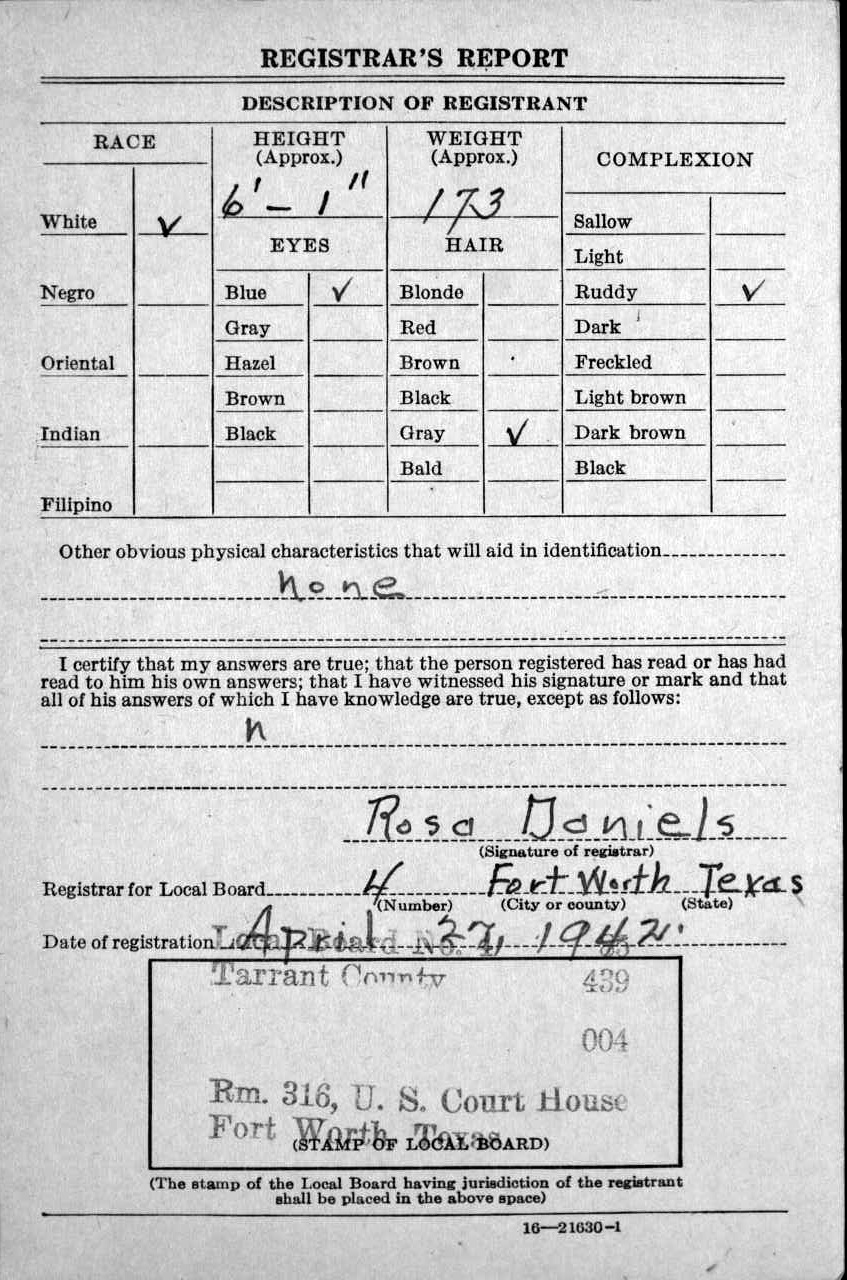 REGISTRAR'S REPORT
DESCRIPTION OF REGISTRANT
RACE HEIGHT (Approx.) WEIGHT (Approx.) COMPLEXION
6'-1" 173
White ✓ EYES HAIR Sallow
Light
Negro Blue ✓ Blonde Ruddy ✓
Gray Red Dark
Oriental Hazel Brown Freckled
Brown Black Light brown
Indian Black Gray ✓ Dark brown
Bald Black
Filipino
Other obvious physical characteristics that will aid in identification
None
I certify that my answers are true; that the person registered has read or has had
read to him his own answers; that I have witnessed his signature or mark and that
all of his answers of which I have knowledge are true, except as follows:
n
Rosa Daniels
(Signature of registrar)
Registrar for Local Board 4 Fort Worth Texas
(Number) (City or county) (State)
Date of registration April 27, 1942.
Local Board No.
Tarrant County 439
004
Rm. 316, U. S. Court House
Fort Worth, Texas
(STAMP OF LOCAL BOARD)
(The stamp of the Local Board having jurisdiction of the registrant
shall be placed in the above space)
16—21630-1